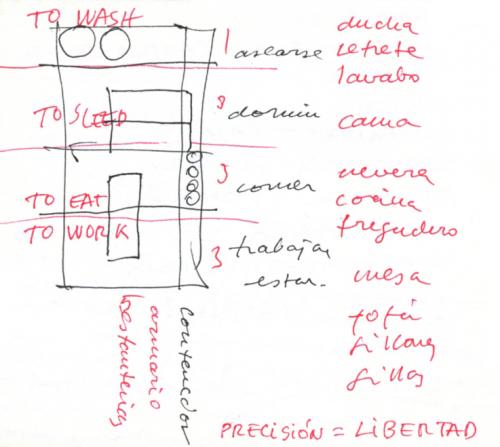 TO WASH
1 asearse
ducha
retrete
lavabo
TO SLEEP
dormir
cama
TO EAT
comer
nevera
cocina
fregadero
TO WORK
3 trabajar
estar.
mesa
sofá
sillones
sillas
contenedor
armario
estanterías
PRECISIÓN = LIBERTAD